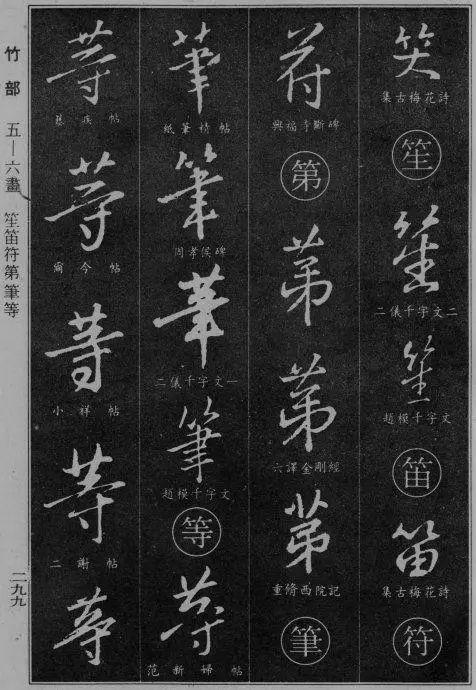 竹部 五—六畫 笙笛符第筆等 二九九
笑
集古梅花詩
笙
笙
二儀千字文二
笙
趙模千字文
笛
笛
集古梅花詩
符
符
興福寺斷碑
第
第
第
六譯金剛經
第
重脩西院記
筆
筆
紙筆精帖
筆
周孝侯碑
筆
二儀千字文一
筆
趙模千字文
等
等
范新婦帖
等
疾帖
等
今帖
等
小祥帖
等
二謝帖
等